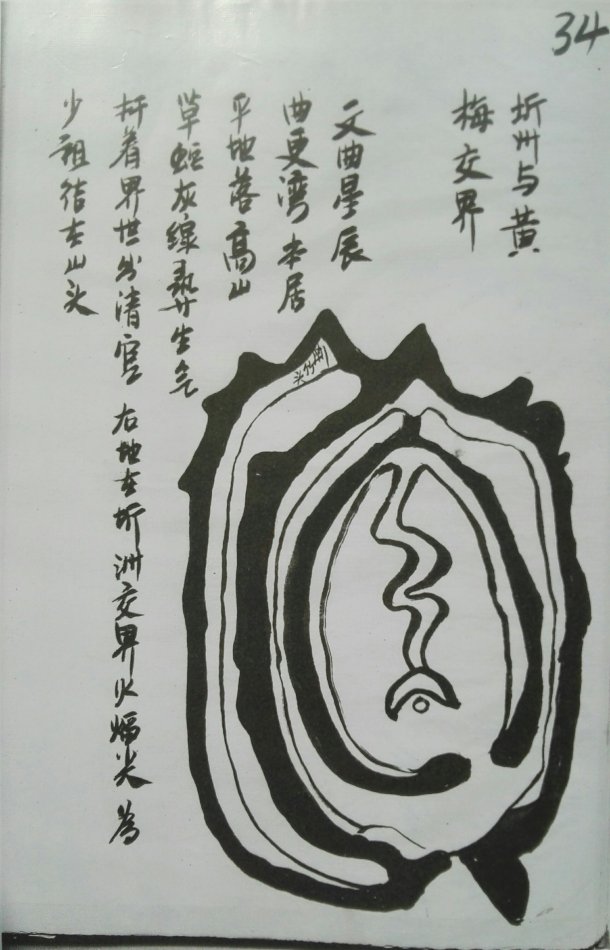 34
圻州与黄
梅交界
文曲星辰
曲更湾本居
平地落高山
草灰線生气
杆着界世出清官 右地在圻洲交界火尖為
少祖结在山头